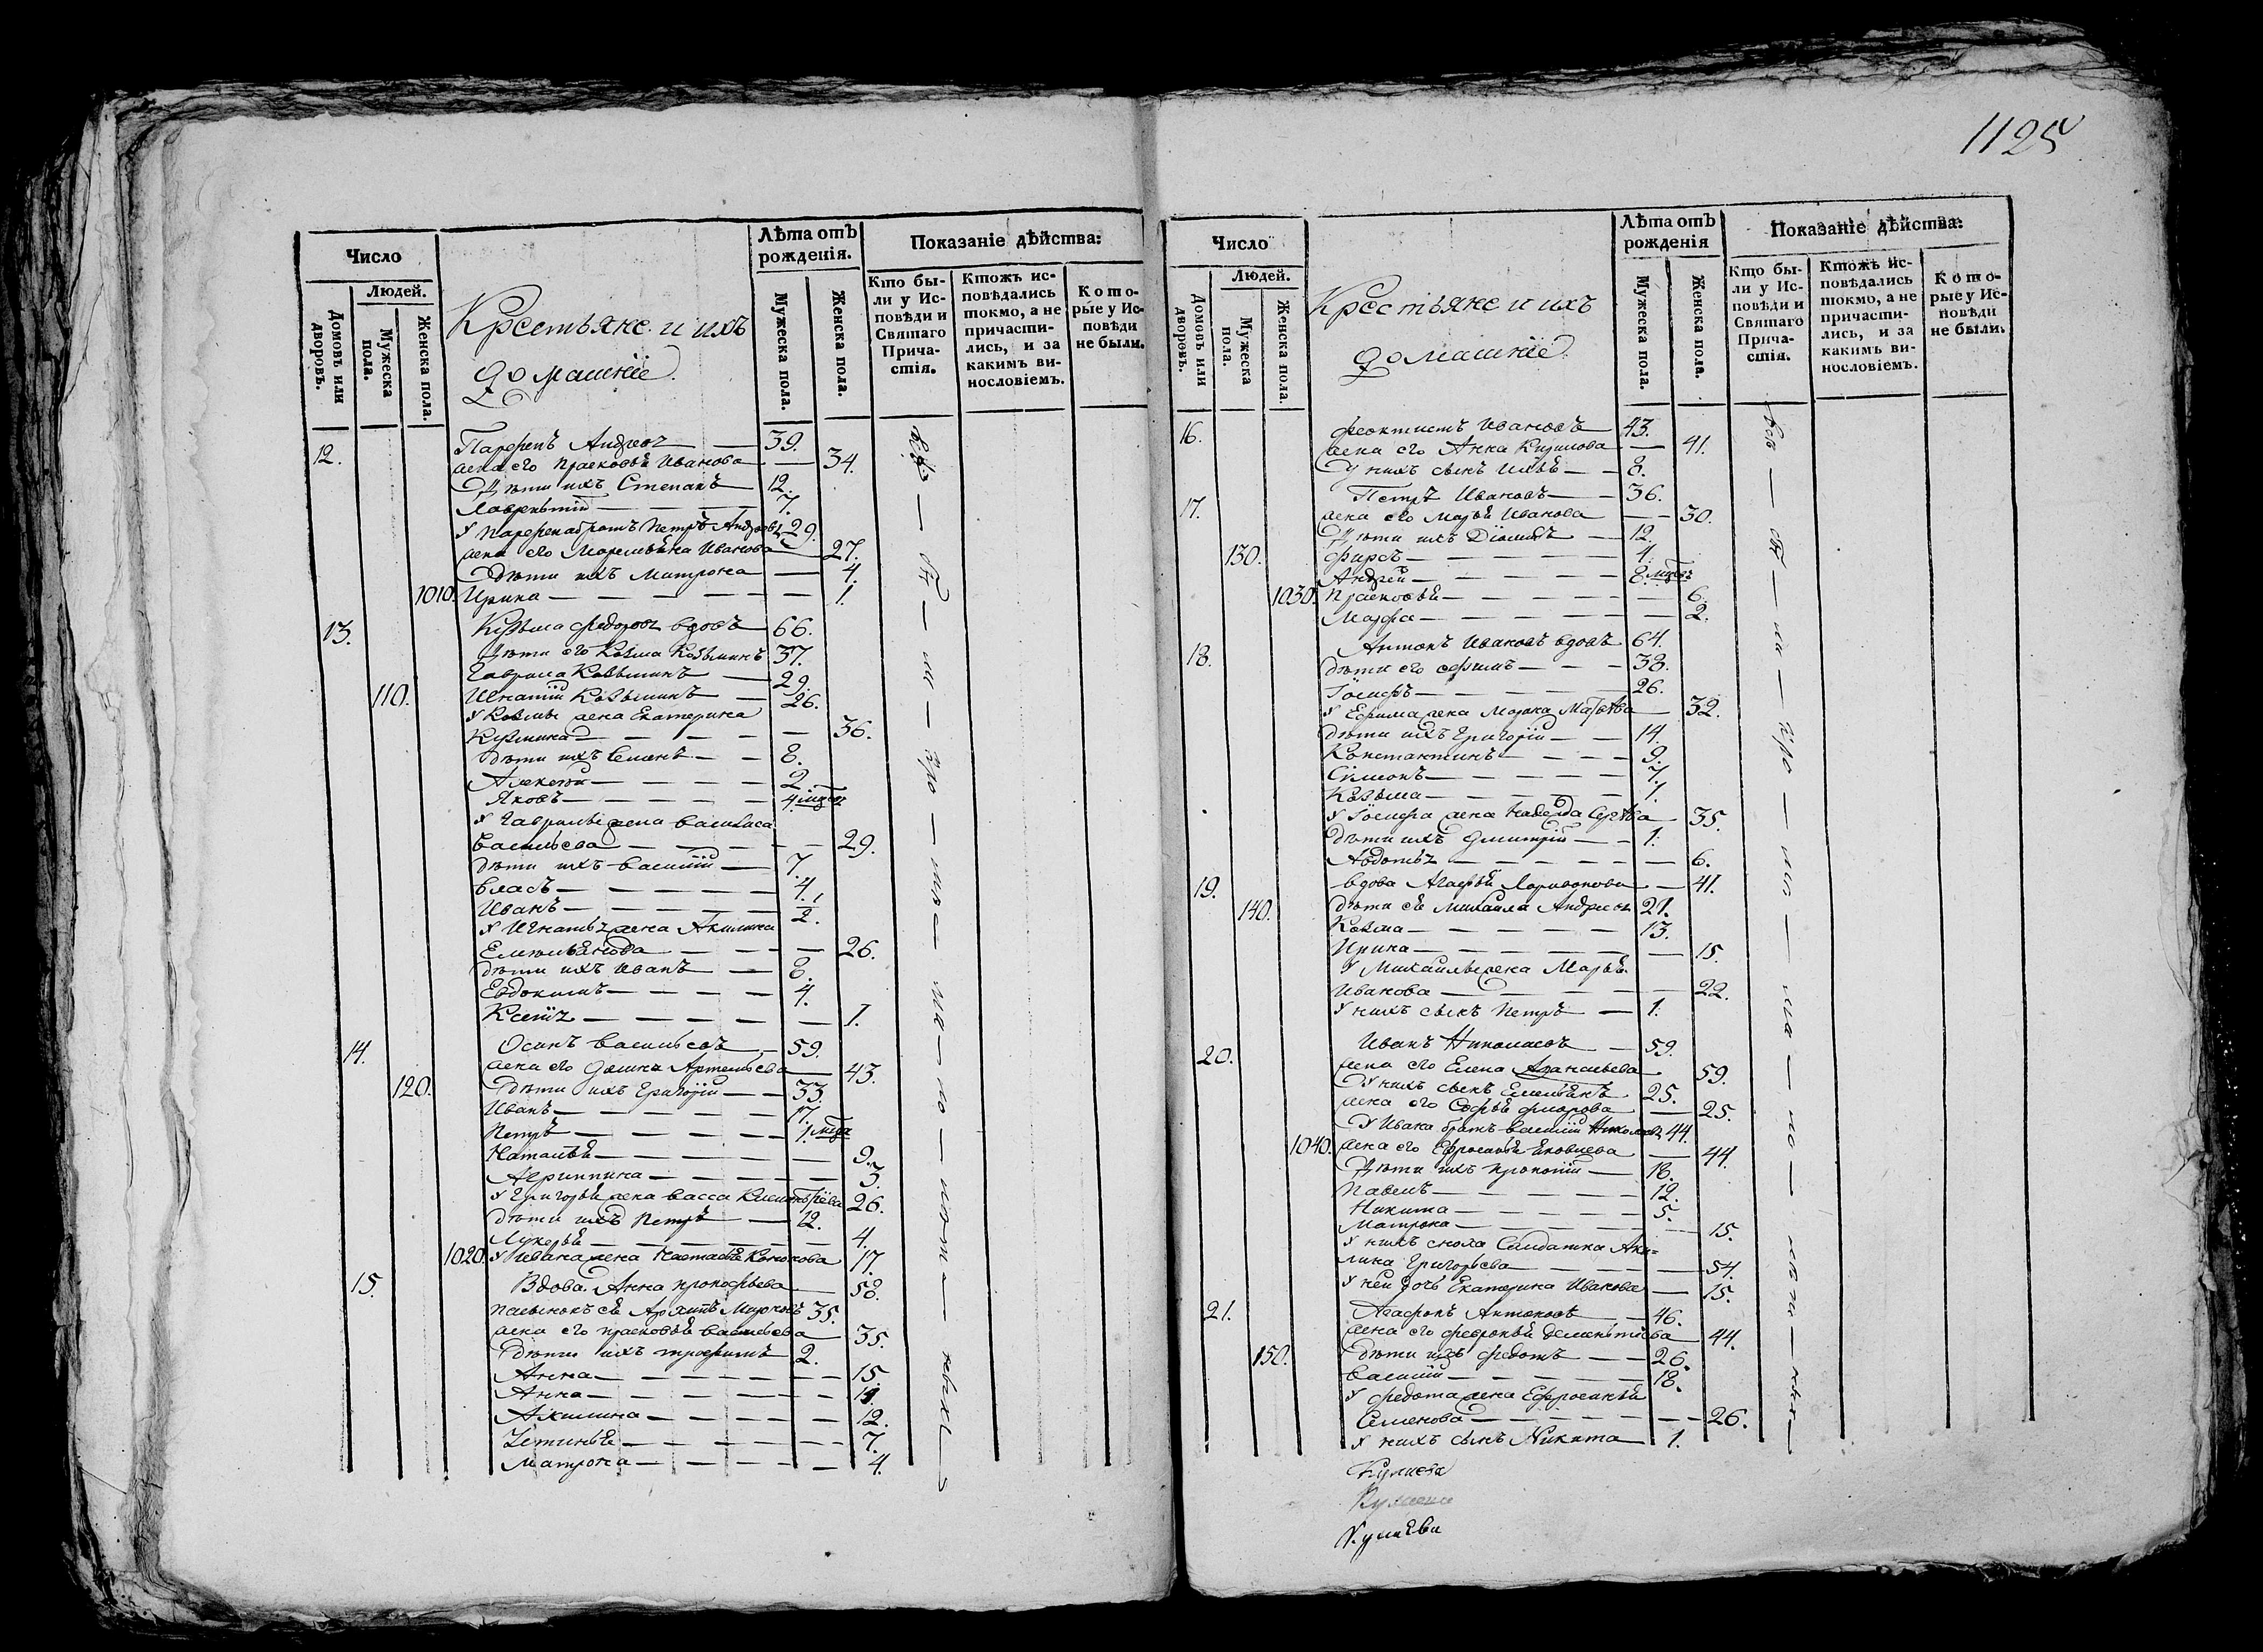 1125
Число
Людей.
Домовъ или дворовъ.
Мужеска пола.
Женска пола.
Крестьяне и ихъ
домашнїе.
Лѣта отъ рожденія.
Мужеска пола.
Женска пола.
Показаніе дѣйства:
Кто были у Исповѣди и Святаго Причастія.
Ктожъ исповѣдались токмо, а не причастились, и за какимъ винословіемъ.
Которые у Исповѣди не были.
12. Парфенъ Андреевъ — 39.
жена его Прасковья Иванова — 34.
Дѣти ихъ Степанъ — 12.
Лаврентій — 7.
У Парфена братъ Петръ Андреевъ 29.
жена его Маремьяна Иванова — 27.
Дѣти ихъ Матрона — 4.
1010. Ирина — 1.
13. Кузьма Федоровъ вдовъ 66.
Дѣти его Козма Козьминъ 37.
Гаврила Козьминъ — 29.
110. Игнатій Козьминъ — 26.
У Козмы жена Екатерина
Кузмина — 36.
дѣти ихъ Семенъ — 8.
Алексей — 2.
Яковъ — 4. мцов
У Гаврилы жена Василиса
Васильева — 29.
дѣти ихъ Василій — 7.
Власъ — 4.
Иванъ — 1/2.
У Игнатья жена Акилина
Емельянова — 26.
дѣти ихъ Иванъ — 8.
Евдокимъ — 4.
Ксенія — 1.
14. Осипъ Васильевъ — 59.
жена его Артемьева — 43.
120. дѣти ихъ Григорій — 33.
Иванъ — 17.
Петръ — 1.
Наталья — 9.
Агриппина — 3.
У Григорья жена Васса 26.
дѣти ихъ Петръ — 12.
Лукерья — 4.
1020. У Ивана жена Настасья Кононова 17.
15. Вдова Анна Прокофьева — 58.
пасынокъ ея Архипъ Мироновъ 35.
жена его Прасковья Васильева 35.
дѣти ихъ Трофимъ 2.
Анна — 15.
Анна —
Акилина — 12.
Устинья — 7.
Матрона — 4.
Число
Людей.
Домовъ или дворовъ.
Мужеска пола.
Женска пола.
Крестьяне и ихъ
домашнїе.
Лѣта отъ рожденія
Мужеска пола.
Женска пола.
Показаніе дѣйства:
Кто были у Исповѣди и Святаго Причастія.
Ктожъ исповѣдались токмо, а не причастились, и за какимъ винословіемъ.
Которые у Исповѣди не были.
16. Феоктистъ Ивановъ 43.
жена его Анна Кирилова — 41.
У нихъ сынъ — 8.
17. Петръ Ивановъ — 36.
жена его Марья Иванова — 30.
Дѣти ихъ Діомидъ — 12.
130. Фирсъ — 4.
Андрей — 8.
1030. Прасковья — 6.
Марфа — 2.
18. Антонъ Ивановъ вдовъ 64.
дѣти его Ефимъ — 38.
Іосифъ — 26.
У Ефима жена 32.
дѣти ихъ Григорій — 14.
Константинъ — 9.
Симеонъ — 7.
Козьма — 1.
У Іосифа жена Надежда 35.
дѣти ихъ Дмитрій — 1.
Авдотья — 6.
19. вдова Агафья Ларионова — 41.
140. дѣти ея Михаила Андреевъ 21.
Козма — 13.
Ирина — 15.
У Михаилы жена Марья
Иванова — 22.
У нихъ сынъ Петръ — 1.
20. Иванъ Николаевъ — 59.
жена его Елена Афанасьева 59.
У нихъ сынъ Емельянъ 25.
жена его Софья Фролова — 25.
У Ивана братъ Василій Николаевъ 44.
1040. жена его Ефросинья Яковлева 44.
Дѣти ихъ Прокопій — 18.
Павелъ — 12.
Никита — 5.
Матрона — 15.
У нихъ сноха Салдатка Аки-
лина Григорьева — 54.
У ней дочь Екатерина Иванова — 15.
21. Агафонъ Антоновъ — 46.
жена его Февронья Дементьева 44.
150. дѣти ихъ Федотъ — 26.
Василій — 18.
У Федота жена Ефросинья
Семенова — 26.
У нихъ сынъ Никита 1.